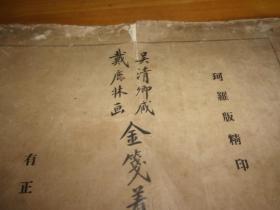 珂羅版精印
吳清卿臧
戴鹿牀画
金箋
有正